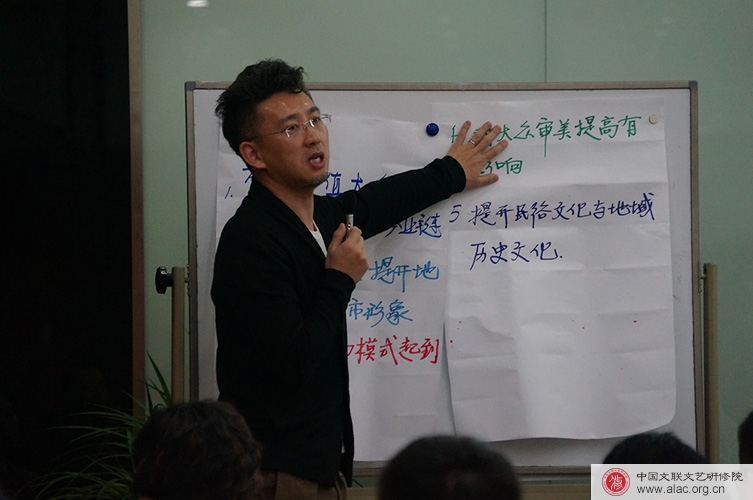 1.
值
业链
提升地
市形象
模式起到
大众审美提高有
响
5 提升民俗文化与地域
历史文化.
中国文联文艺研修院
www.alac.org.cn